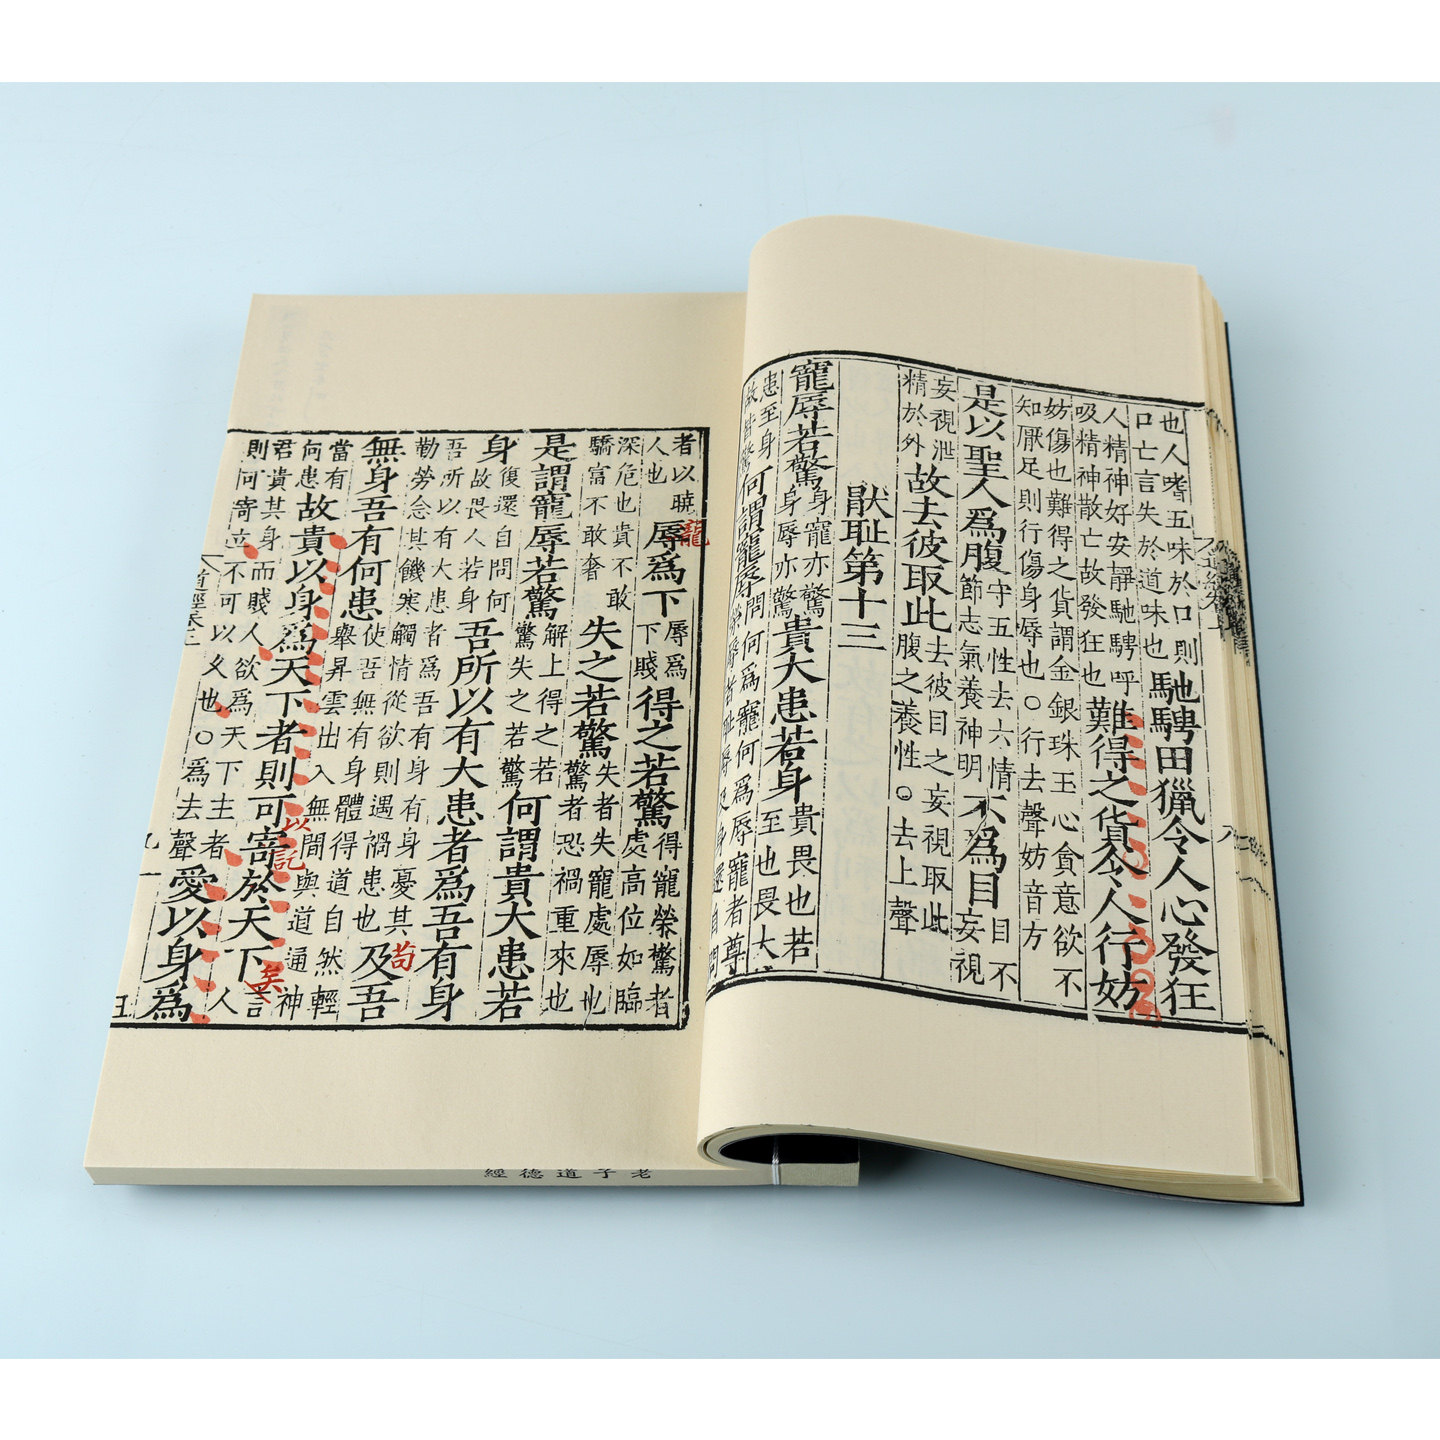 也人嗜五味於口則
口亡言失於道味也
馳騁田獵令人心發狂
人精神好安靜馳騁呼
吸精神散亡故發狂也
難得之貨令人行妨
妨傷也難得之貨謂金銀珠玉心貪意欲不
知厭足則行傷身辱也○行去聲妨音方
是以聖人爲腹
守五性去六情
節志氣養神明
不爲目
目不
妄視
妄視泄
精於外
故去彼取此
去彼目之妄視取此
腹之養性○去上聲
猒恥第十三
寵辱若驚
身寵亦驚
身辱亦驚
貴大患若身
貴畏也若
至也畏大
患至身
故皆驚
何謂寵辱
問何爲寵何爲辱寵者尊
者以曉
人也
寵
辱爲下
辱爲
下賤
得之若驚
得寵榮驚者
處高位如臨
深危也貴不敢
驕富不敢奢
失之若驚
失者失寵處辱也
驚者恐禍重來也
是謂寵辱若驚
解上得之若
驚失之若驚
何謂貴大患若
身
復還自問何
故畏人若身
吾所以有大患者爲吾有身
吾所以有大患者爲吾有身有身憂其
勤勞念其饑寒觸情從欲則遇禍患也
苟
及吾
無身吾有何患
使吾無有身體得道自然輕
舉昇雲出入無間與道通神
當有
何患
故貴以身爲天下者則可寄於天下
以託
矣
言
人
君貴其身而賤人欲爲天下主者
則可寄立不可以久也○爲去聲
愛以身爲
道經卷上
九
老子道德經